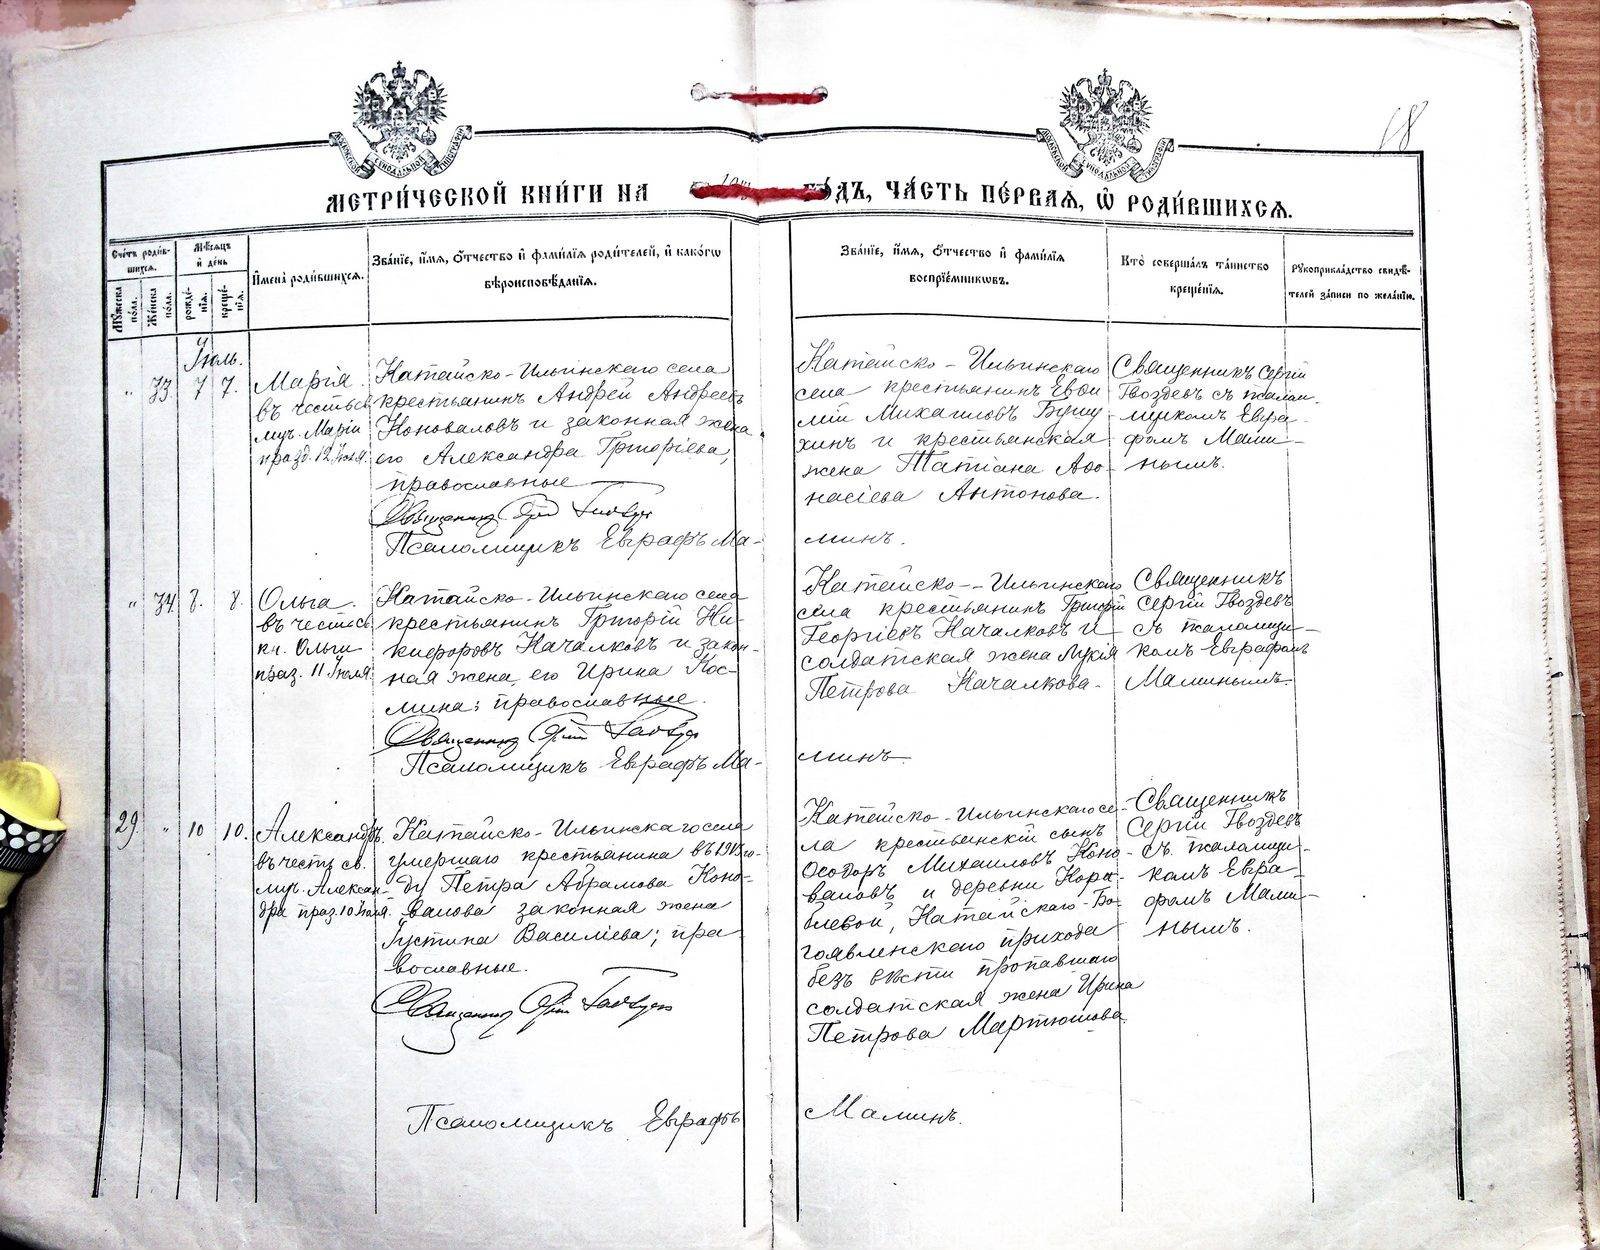 68
МЕТРИ́ЧЕСКОЙ КНИ́ГИ НА ГО́ДЪ, ЧА́СТЬ ПЕ́РВАѦ, Ѡ҆ РОДИ́ВШИХСѦ.
Сче́тъ роди́вшихсѧ.
Мѣ́сѧцъ и҆ де́нь
Мꙋ́жеска по́ла.
Же́нска по́ла.
рожде́нїѧ.
креще́нїѧ.
И҆мена̀ роди́вшихсѧ.
Зва́нїе, и҆́мѧ, ѻ҆́тчество и҆ фами́лїѧ роди́телей, и҆ како́гѡ
вѣроисповѣ́данїѧ.
Зва́нїе, и҆́мѧ, ѻ҆́тчество и҆ фами́лїѧ
воспрїе́мникѡвъ.
Кто̀ соверша́лъ та́инство
креще́нїѧ.
Рꙋкоприкла́дство свидѣ́-
телей за́писи по жела́нїю.
Іюль.
" 33. 7 7.
Марія
въ честь св.
муч. Маріи
празд. 12 Іюля.
Катайско-Ильинскаго села
крестьянинъ Андрей Андреевъ
Коноваловъ и законная жена
его Александра Григоріева,
православные
Священникъ Сергій Гвоздевъ
Псаломщикъ Евграфъ Ма-
Катайско-Ильинскаго
села крестьянинъ Евѳи
мій Михаиловъ Бушу
хинъ и крестьянская
жена Татіана Аѳо-
насіева Антонова.
минъ.
Священникъ Сергій
Гвоздевъ съ псалом-
щикомъ Евгра-
фомъ Мами-
нымъ.
" 34. 8. 8.
Ольга.
въ честь св.
кн. Ольги
праз. 11 Іюля.
Катайско-Ильинскаго села
крестьянинъ Григорій Ни-
кифоровъ Качалковъ и закон-
ная жена его Ирина Кос-
мина; православные.
Священникъ Сергій Гвоздевъ
Псаломщикъ Евграфъ Ма-
Катайско-Ильинскаго
села крестьянинъ Григорій
Георгіевъ Качалковъ и
солдатская жена Лукія
Петрова Качалкова.
минъ
Священникъ
Сергій Гвоздевъ
съ псаломщи-
комъ Евграфомъ
Маминымъ.
29. " 10 10.
Александръ.
въ честь св.
муч. Алексан-
дра праз. 10 Іюля.
Катайско-Ильинскаго села
умершаго крестьянина въ 1915 го-
ду Петра Абрамова Коно-
валова законная жена
Іустина Василіева; пра-
вославные.
Священникъ Сергій Гвоздевъ
Псаломщикъ Евграфъ
Катайско-Ильинскаго се-
ла крестьянскій сынъ
Ѳеодоръ Михаиловъ Коно-
валовъ и деревни Кора-
блевой, Катайскаго Бо-
гоявленскаго прихода
безъ вѣсти пропавшаго
солдатская жена Ирина
Петрова Мартюшова.
Маминъ.
Священникъ
Сергій Гвоздевъ
съ псаломщи-
комъ Евгра-
фомъ Мами-
нымъ.